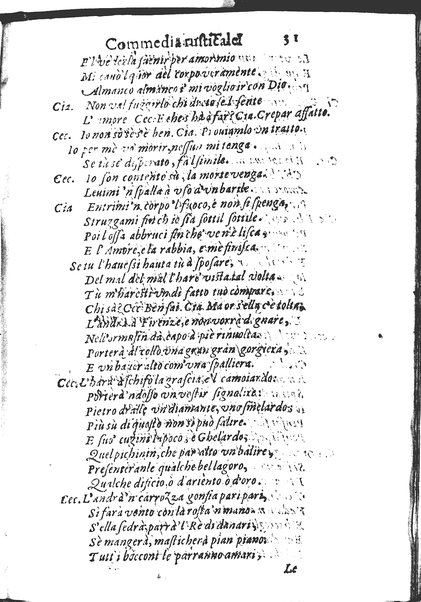 Commedia rusticale 31
E'l ve derla suenir per amor mio
Mi cauò'l quor del corpo veramente.
Almanco almanco è mi vogl'o ir con Dio
Cia. Non val fuggirlo chi drieto se'l sente
L'amore Cec. Eehe s'hà à far? Cia. Crepar affatto.
Cec. Io non sò ire bè hen. Cia. Prouiamlo vn tratto.
Io per mè vò morir, nessun mi tenga.
Se tù se' disperato, fà'l simile.
Cec. Io son contento sù, la morte venga.
Leuimi 'n spalla à vso d'vn barile.
Cia Entrimi'n corpo'l fuoco, e non si spenga,
Struggami finch'io sia sottil sottile.
Poi l'ossa abbruci finche ve n'è lisca,
E l'Amore, e la rabbia, e mè finisca.
Se tu l'hauessi hauta tù à sposare,
Del mal del mal l'harè vista tal volta
Tù m'haresti vn dì fatto tuo compare,
Chi sà? Cec Ben sai. Cia. Ma or s'ella c'è tolta
L'andrà à Firenze, e non vorrà degnare,
Nell'ormusin da capo à piè rinuolta.
Porterà al collo vna gran gran gorgiera,
E vn bauer alto com'vna spalliera.
Cec. L'harà à schifo la grascia, e'l camoiardo:
Porterà 'ndosso vn vestir signolire.
Pietro dralle vn diamante, vno smelardo:
Più sù di questo non si può salire.
E sus' cugin lapoco, e Ghelardo,
Quel pichinin, che par alto vn balire,
Presenteranle qualche bellagoro,
Qualche dificio, ò d'ariento ò d'oro.
Cec. L'andrà 'n carrozza gonfia pari pari,
Si farà vento con la rosta 'n mano.
S'ella sedrà, parrà l'Rè di danari,
Se mangerà, masticherà pian piano.
Tutti i bocconi le parranno amari,
Le